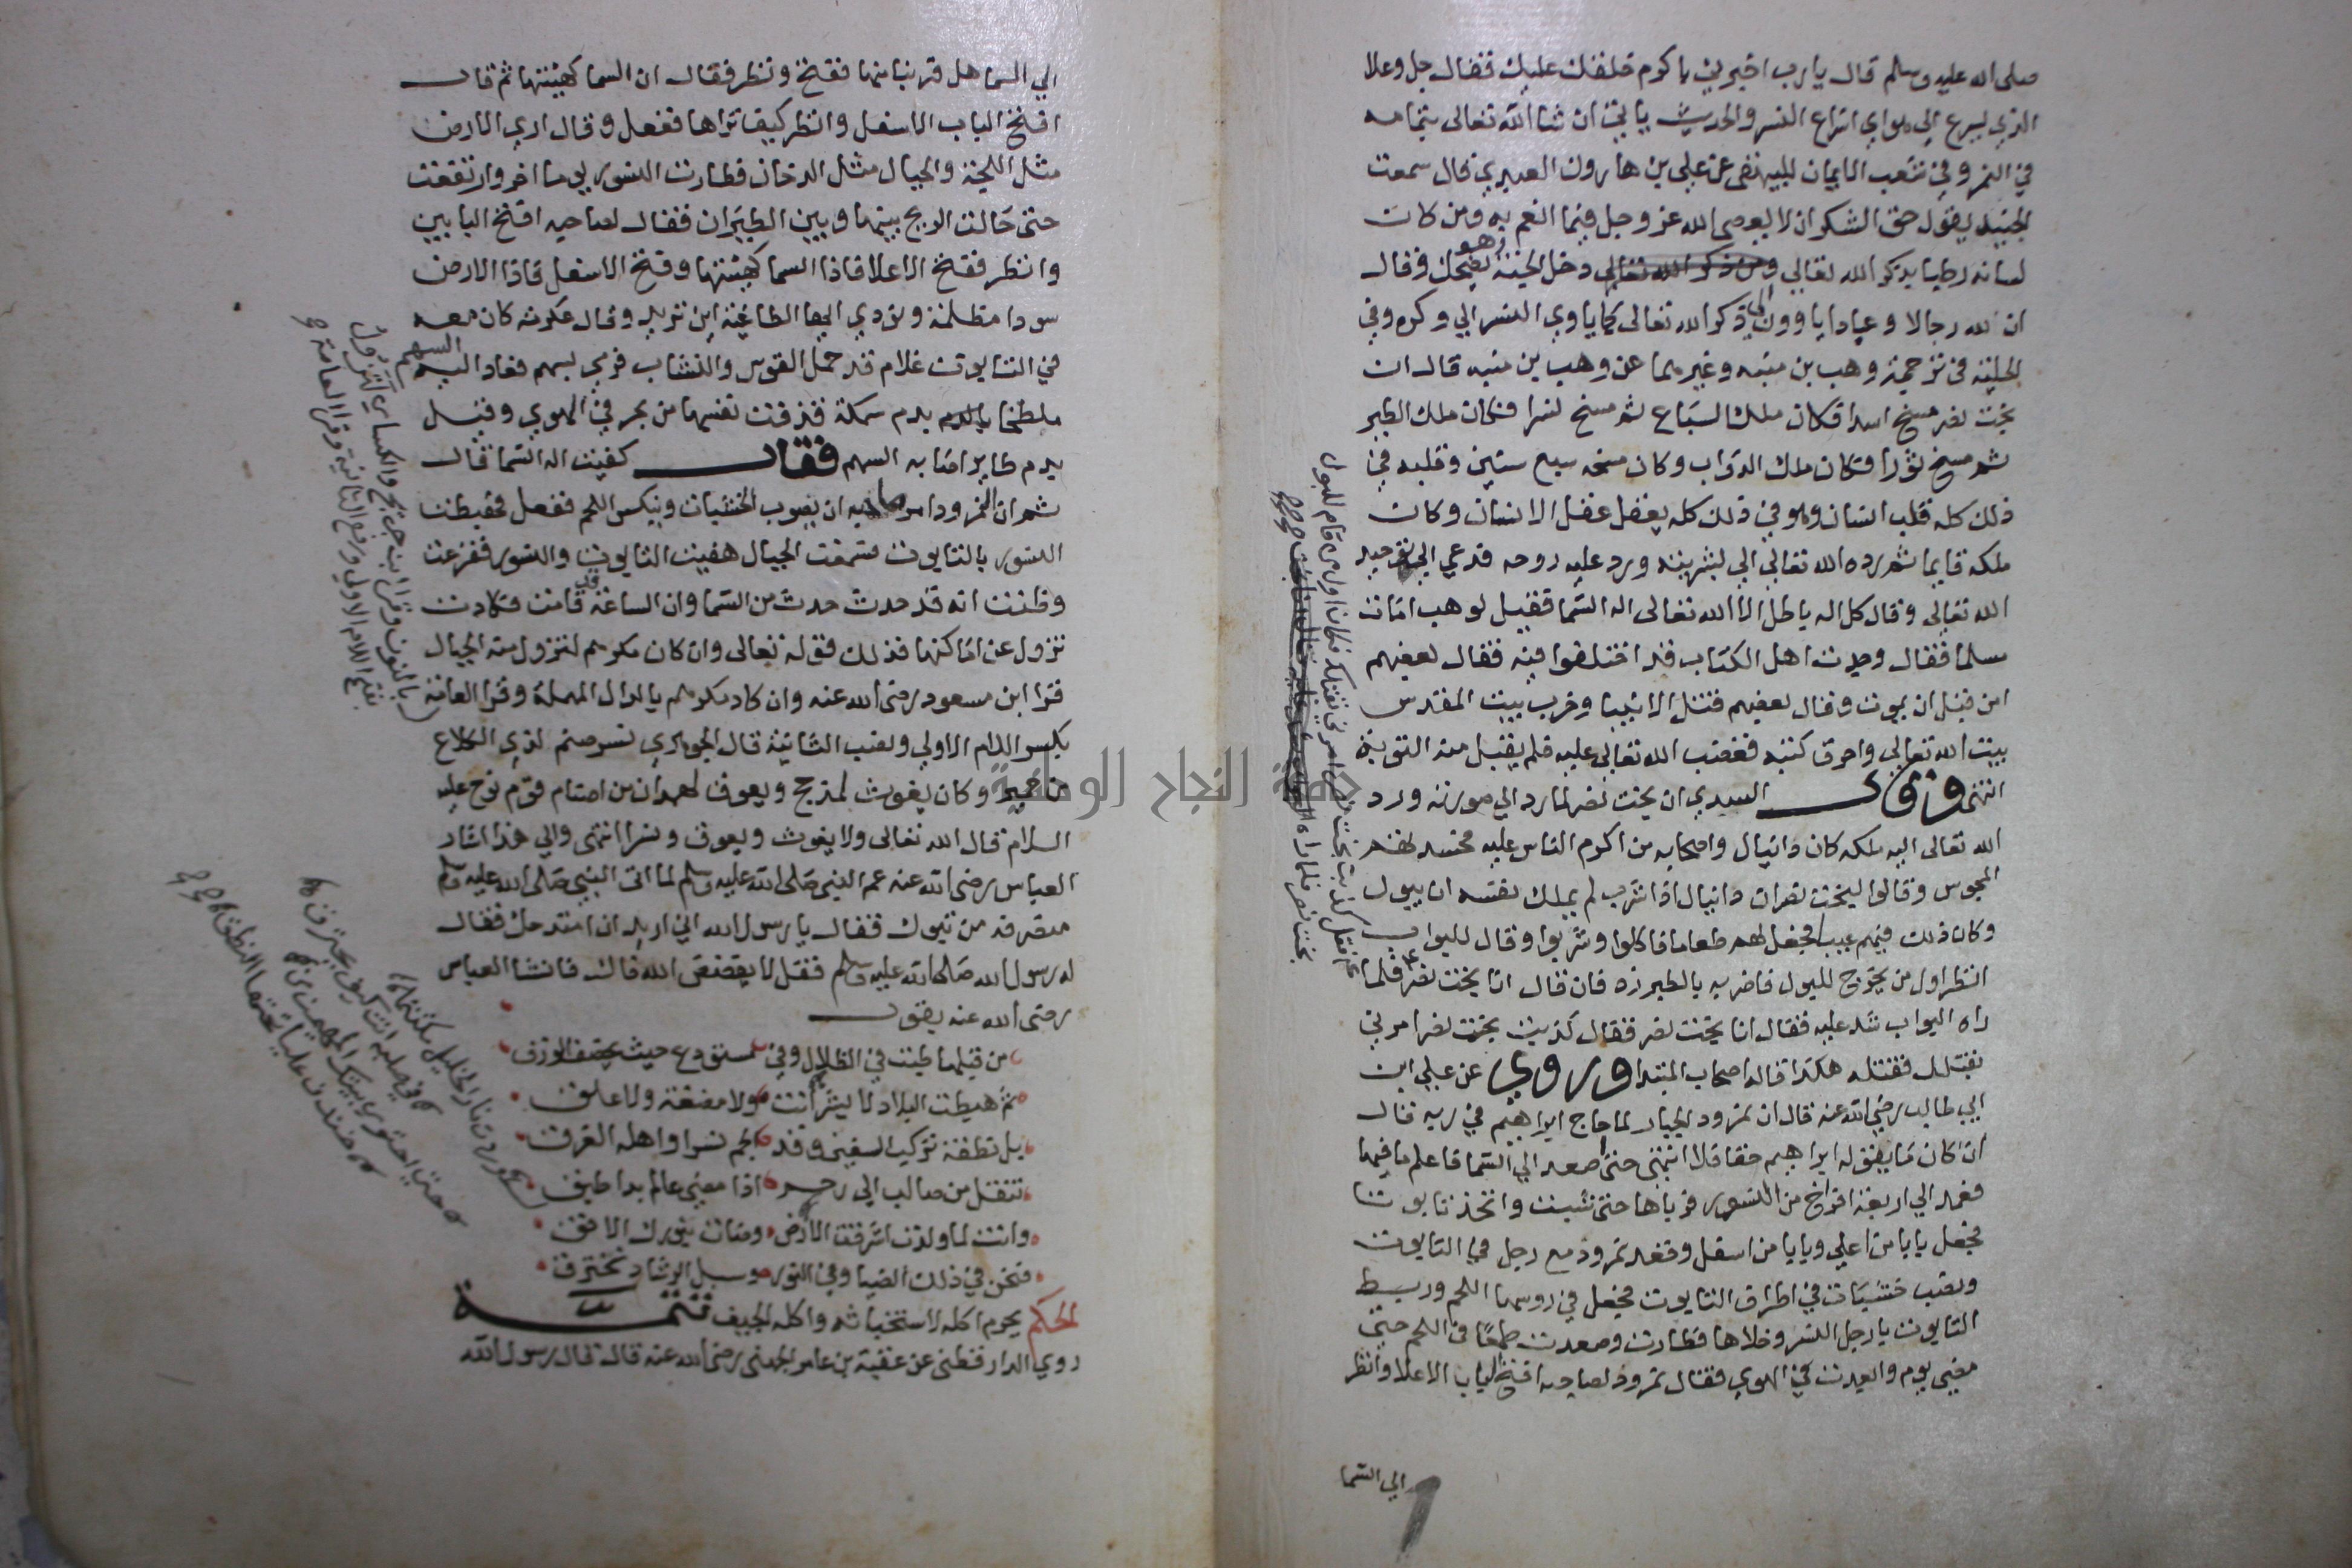 صلى الله عليه وسلم قال يارب اخبرني باكرم خلقك عليك فقال جل وعلا
الذي يسرع الي هواي اسراع النسر والحديث ياتي ان شا الله تعالى بتمامه
في النمر وفي شعب الايمان للبيهقي عن علي بن هارون العبدي قال سمعت
الجنيد يقول حق الشكر ان لا يعصى الله عز وجل فيما انعم به ومن كان
لسانه رطبا بذكر الله تعالى دخل الجنة وهو يضحك وقال
ان لله رجالا وعبادا ياوون الى ذكر الله تعالى كما ياوي النسر الي وكره وفي
الحلية في ترجمة وهب بن منبه وغيرها عن وهب بن منبه قال ان
بخت نصر مسخ اسدا فكان ملك السباع ثم مسخ نسرا فكان ملك الطير
ثم مسخ ثورا فكان ملك الدواب وكان مسخه سبع سنين وقلبه في
ذلك كله قلب انسان وهو في ذلك كله يعقل عقل الانسان وكان
ملكه قايما ثم رده الله تعالى الي بشريته ورد عليه روحه فدعي الي توحيد
الله تعالى وقال كل اله باطل الا الله تعالى اله السما فقيل لوهب امات
مسلما فقال وجدت اهل الكتاب قد اختلفوا فيه فقال بعضهم
امن قبل ان يموت وقال بعضهم قتل الانبيا وخرب بيت المقدس
بيت الله تعالى واحرق كتبه فغضب الله تعالى عليه فلم يقبل منه التوبة
انتهى وقال السدي ان بخت نصر لما رد الي صورته ورد
الله تعالى اليه ملكه كان دانيال واصحابه من اكرم الناس عليه فحسدهم
المجوس وقالوا لبخت نصر ان دانيال اذا شرب لم يملك نفسه ان يبول
وكان ذلك فيهم عيبا فجعل لهم طعاما فاكلوا وشربوا وقال للبواب
انظر اول من يخرج للبول فاضربه بالطبرزه فان قال انا بخت نصر فلما
راه البواب شد عليه فقال انا بخت نصر فقال كذبت بخت نصر امرني
بقتلك فقتله هكذا قاله اصحاب المبتدا وروي عن علي ابن
ابي طالب رضي الله عنه قال ان نمرود الجبار لما حاج ابراهيم في ربه قال
ان كان ما يقوله ابراهيم حقا فلا انتهى حتى اصعد الي السما فاعلم ما فيها
فعمد الي اربعة افراخ من النسور فرباها حتى شبت واتخذ تابوتا
فجعل بابا من اعلي وبابا من اسفل وقعد نمرود مع رجل في التابوت
ونصب خشبات في اطراف التابوت فجعل في روسها اللحم وربط
التابوت بارجل النسر وخلاها فطارت وصعدت طمعا في اللحم حتي
مضى يوم وابعدت في الهوي فقال نمروذ لصاحبه افتح الباب الاعلا وانظر
الي السما
كذبت بخت نصر امرني بقتلك فكان اول من قام للبول
بخت نصر فلما راه
الي السما هل قربنا منها ففتح ونظر فقال ان السما كهيئتها ثم قال
افتح الباب الاسفل وانظر كيف تراها ففعل وقال اري الارض
مثل اللجة والجبال مثل الدخان فطارت النسور يوما اخر وارتفعت
حتى حالت الريح بينها وبين الطيران فقال لصاحبه افتح البابين
وانظر ففتح الاعلا فاذا السما كهيئتها وفتح الاسفل فاذا الارض
سودا مظلمة ونودي ايها الطاغية اين تريد وقال عكرمة كان معه
في التابوت غلام قد حمل القوس والنشاب فرمي بسهم فعاد اليه السهم
ملطخا بدم سمكة قذفت نفسها من بحر في الهوي وقيل
بدم طاير اصابه السهم فقال كفيت اله السما قال
ثم ان النمرود امر صاحبه ان يصوب الخشبات وينكس اللحم ففعل فهبطت
النسور بالتابوت فسمعت الجبال هفيف التابوت والنسور ففزعت
وظنت انه قد حدث حدث من السما وان الساعة قد قامت فكادت
تزول عن اماكنها فذلك قوله تعالى وان كان مكرهم لتزول منه الجبال
قرا ابن مسعود رضى الله عنه وان كاد مكرهم بالدال المهملة وقرا العامة
بكسر اللام الاولي ونصب الثانية قال الجوهري نسر صنم لذي الكلاع
من حمير وكان يغوث لمذحج ويعوق لهمدان من اصنام قوم نوح عليه
السلام قال الله تعالى ولا يغوث ويعوق ونسرا انتهى والي هذا اشار
العباس رضى الله عنه عم النبي صلى الله عليه وسلم لما اتى النبي صلى الله عليه وسلم
منصرفه من تبوك فقال يارسول الله اني اريد ان امتدحك فقال
له رسول الله صلى الله عليه وسلم فقل لا يفضض الله فاك فانشا العباس
رضى الله عنه يقول
من قبلها طبت في الظلال وفي مستودع حيث يخصف الورق
ثم هبطت البلاد لا بشر انت ولا مضغة ولا علق
بل نطفة تركب السفين وقد الجم نسرا واهله الغرق
تنقل من صالب الي رحم اذا مضي عالم بدا طبق
وانت لما ولدت اشرقت الارض وضات بنورك الافق
فنحن في ذلك الضيا وفي النور وسبل الرشاد نخترق
الحكم يحرم اكله لاستخباثه واكله الجيف تتمة
روي الدارقطني عن عقبة بن عامر الجهني رضى الله عنه قال قال رسول الله
بالنون وقرا ابن جريج والكسائي لتزول
بفتح اللام الاولي ورفع الثانية وقرا العامة
وردت نار الخليل مكتتما
في صلبه انت كيف يحترق
حتى احتوي بيتك المهيمن من
خندف عليا تحتها النطق